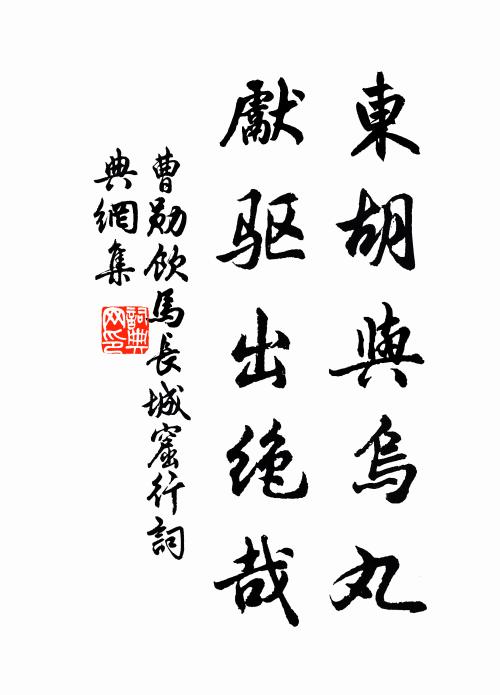 東胡與烏丸
獻驱出绝哉
曹勋飲馬長城窟行詞
典網集
詞典
网印